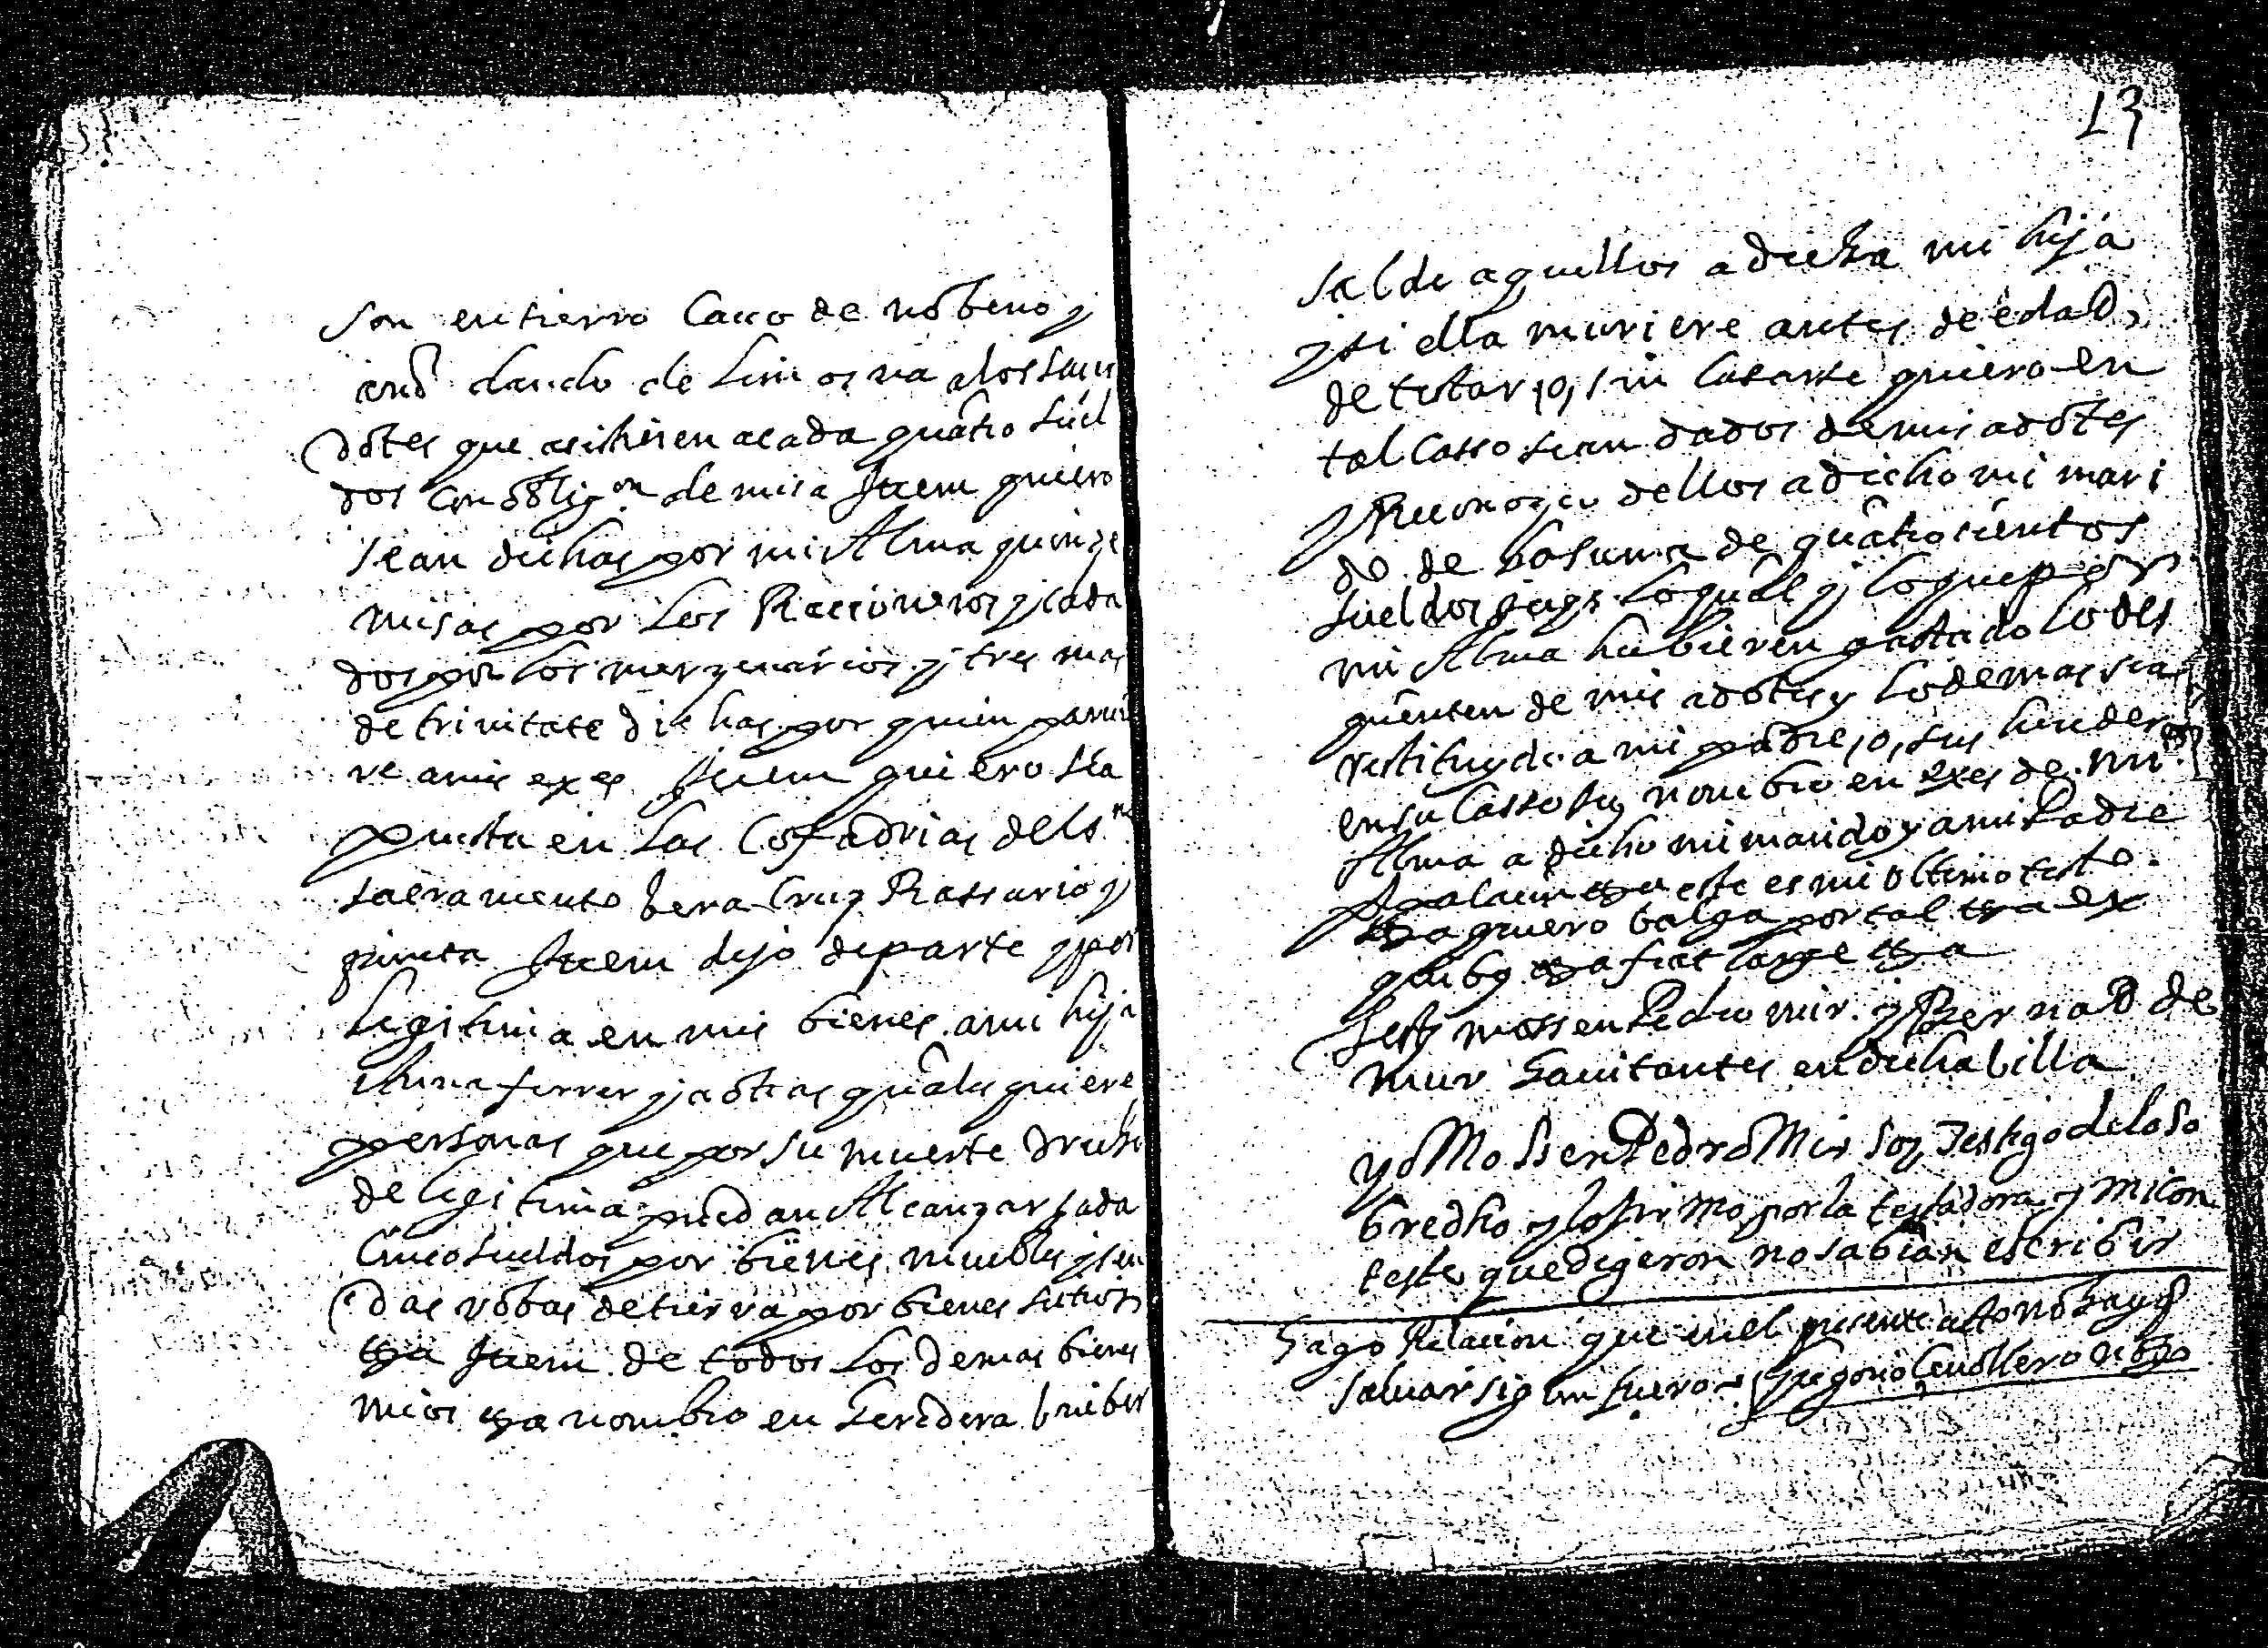 son entierro Cauo de nobeno y
año dando de limosna a los sacer
dotes que asistieren a cada quatro suel
dos con oblig.on de misa Item quiero
sean dichas por mi Alma quinze
misas por los Racioneros y cada
dos por los merzenarios y tres mas
de trinitate dichas por quien parecie
re a mis exes Item quiero sea
puesta en las Cofadrias del s.mo
sacramento bera Cruz Rossario y
Item dejo de parte y por
legitima en mis bienes a mi hija
ferrer y a otras quales quiere
personas que por su muerte drecho
de legitima puedan Alcanzar cada
Cinco sueldos por bienes muebles y sen
das robas de tierra por bienes sitios
Item de todos los demas bienes
mios nombro en heredera
13
a dicha mi hija
y si ella muriere antes de edad
de testar, o, sin Casarse quiero en
tal Casso sean dados de mis adotes
y dellos a dicho mi mari
do de la suma de quatrocientos
sueldos jaqs lo qual y lo que por
mi Alma hubieren gastado lo des
quenten de mis adotes y lo demas sea
restituydo a mi padre, o, sus herederos
en su Casso y nombro en exes de mi
Alma a dicho mi marido y a mi Padre
este es mi ultimo testo
quiero balga por tal ex
quibus fiat large
Tests mossen Pedro mir y Bernad de
mur hauitantes en dicha billa
yo Mossen Pedro Mir soy Testigo de lo so
bredho y lo firmo por la testadora y mi con
teste que digeron no sabian escribir
Hago Relacion que en el presente acto no hay q
saluar sigun fuero Gregorio